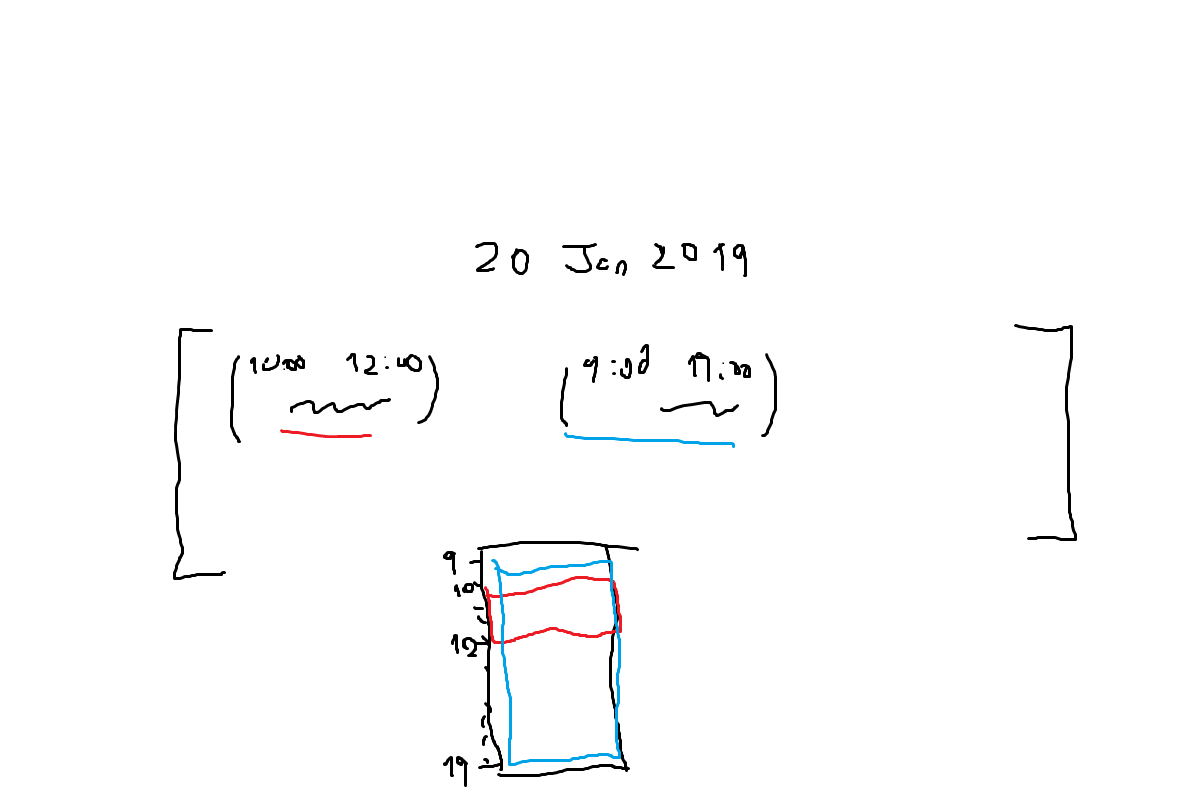 20 Jan 2019
10:00 12:00 9:00 19:00
9
10
12
19